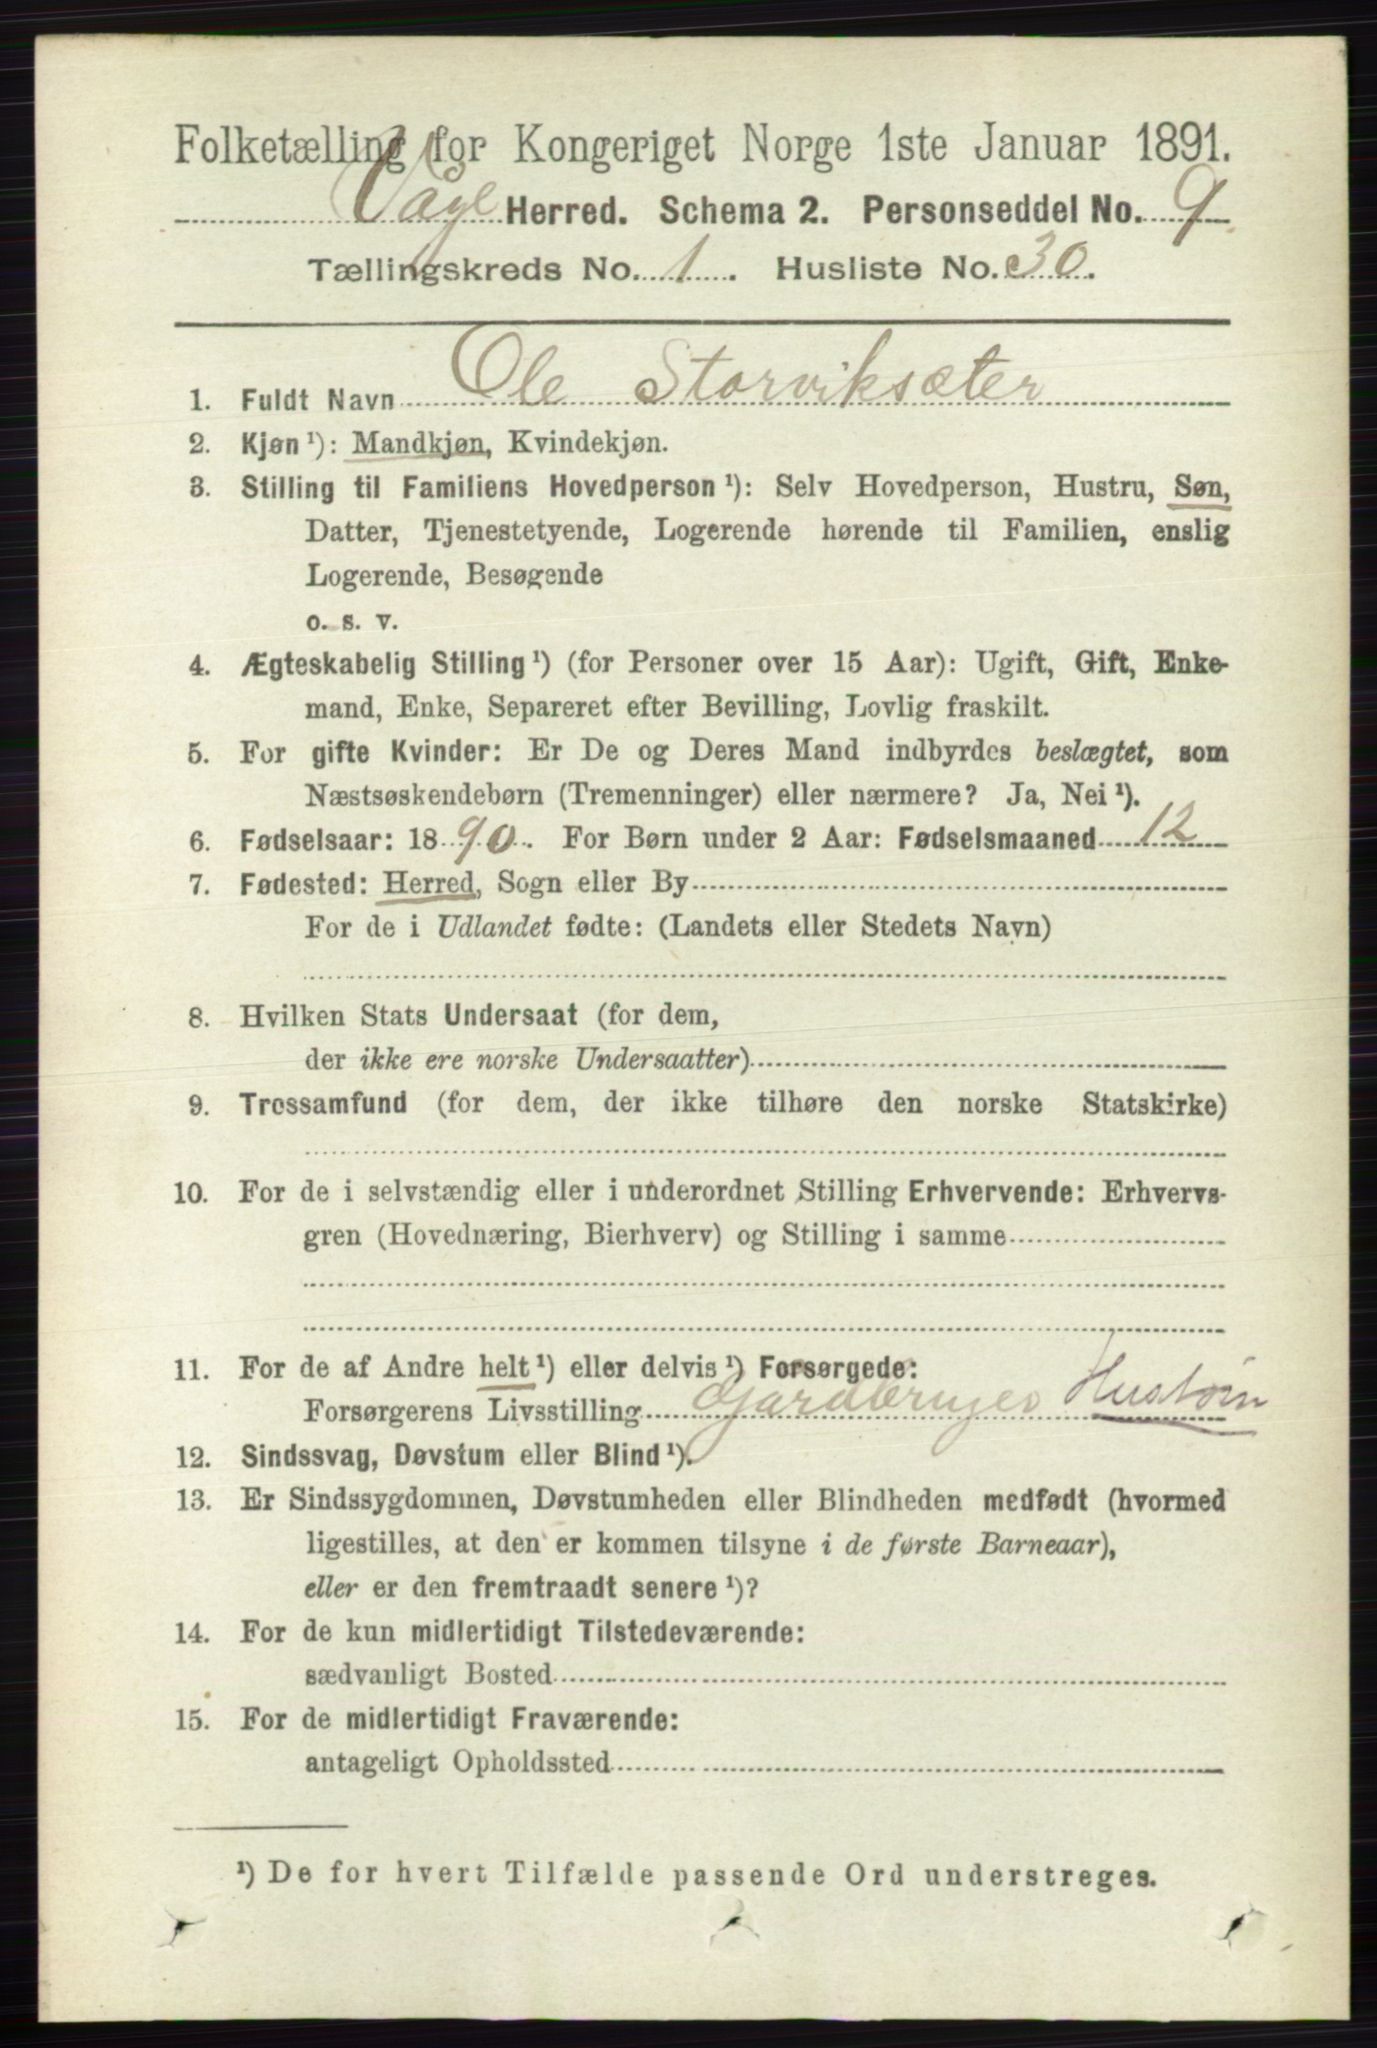 Folketælling for Kongeriget Norge 1ste Januar 1891.
Herred. Schema 2. Personseddel No. 9
Tællingskreds No. 1. Husliste No. 30.
1. Fuldt Navn Ole Storviksæter
2. Kjøn ¹): Mandkjøn, Kvindekjøn.
3. Stilling til Familiens Hovedperson ¹): Selv Hovedperson, Hustru, Søn,
Datter, Tjenestetyende, Logerende hørende til Familien, enslig
Logerende, Besøgende
o. s. v.
4. Ægteskabelig Stilling ¹) (for Personer over 15 Aar): Ugift, Gift, Enke-
mand, Enke, Separeret efter Bevilling, Lovlig fraskilt.
5. For gifte Kvinder: Er De og Deres Mand indbyrdes beslægtet, som
Næstsøskendebørn (Tremenninger) eller nærmere? Ja, Nei ¹).
6. Fødselsaar: 1890. For Børn under 2 Aar: Fødselsmaaned 12
7. Fødested: Herred, Sogn eller By
For de i Udlandet fødte: (Landets eller Stedets Navn)
8. Hvilken Stats Undersaat (for dem,
der ikke ere norske Undersaatter)
9. Trossamfund (for dem, der ikke tilhøre den norske Statskirke)
10. For de i selvstændig eller i underordnet Stilling Erhvervende: Erhvervs-
gren (Hovednæring, Bierhverv) og Stilling i samme
11. For de af Andre helt ¹) eller delvis ¹) Forsørgede:
Forsørgerens Livsstilling Gardbruger
12. Sindssvag, Døvstum eller Blind ¹).
13. Er Sindssygdommen, Døvstumheden eller Blindheden medfødt (hvormed
ligestilles, at den er kommen tilsyne i de første Barneaar),
eller er den fremtraadt senere ¹)?
14. For de kun midlertidigt Tilstedeværende:
sædvanligt Bosted
15. For de midlertidigt Fraværende:
antageligt Opholdssted
¹) De for hvert Tilfælde passende Ord understreges.